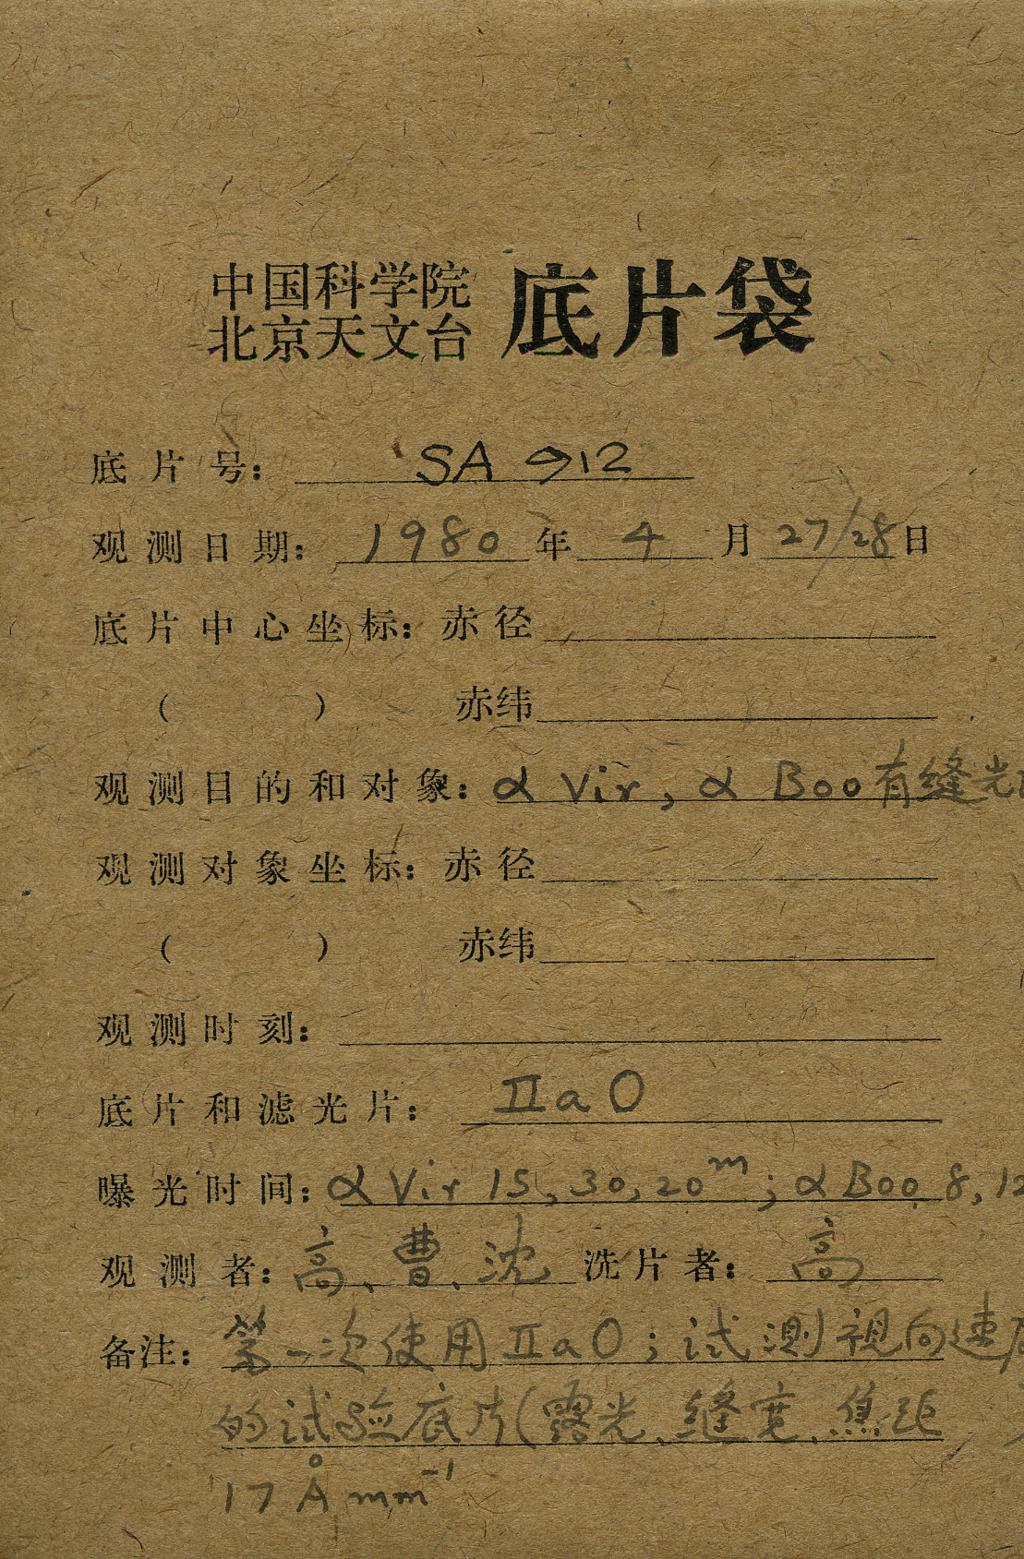 中国科学院
北京天文台 底片袋
底片号: SA 912
观测日期: 1980年 4月 27/28日
底片中心坐标: 赤径
( ) 赤纬
观测目的和对象: α Vir, α Boo 有缝光
观测对象坐标: 赤径
( ) 赤纬
观测时刻:
底片和滤光片: IIaO
曝光时间: α Vir 15, 30, 20ᵐ; α Boo 8, 12
观测者: 高、曹、沈 洗片者: 高
备注: 第一次使用IIaO; 试测视向速度
的试验底片(露光、缝宽、焦距
17 Å mm⁻¹